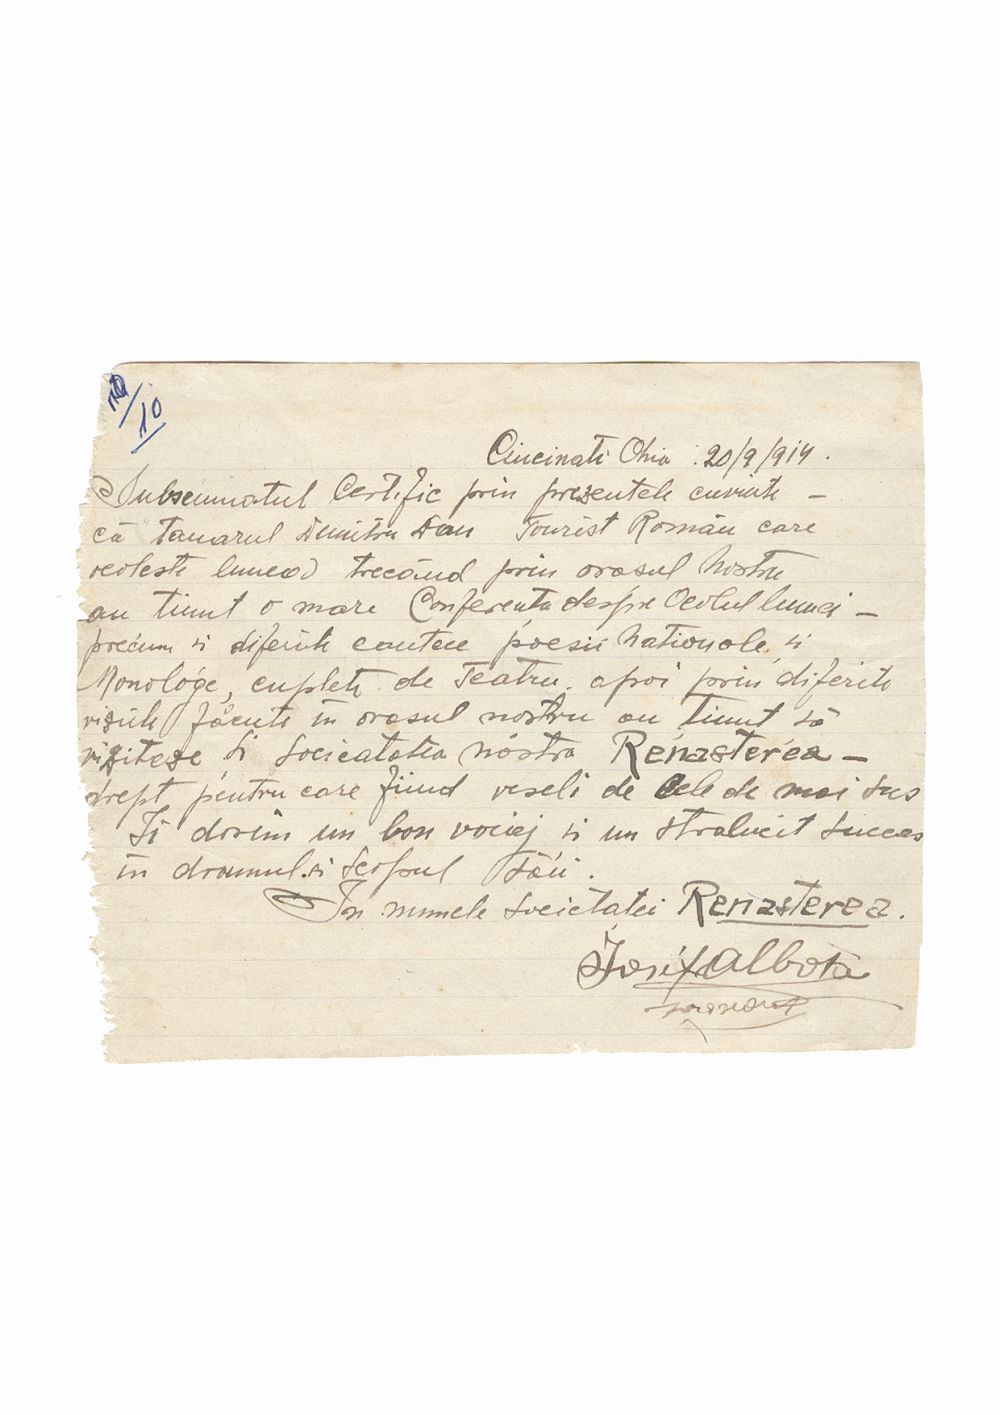 10/10
Cincinati Ohio . 20/9/914 .
Subsemnatul Certific prin prezentele cuvinte –
că tanarul Dumitru Dan Tourist Român care
ocoleste lumea trecând prin orasul nostru
au tinut o mare Conferenta despre Ocolul lumei –
precum si diferite cantece poesii Nationale si
Monologe, cuplete de Teatru. apoi prin diferite
vizite făcute în orasul nostru au tinut să
viziteze si societatea nóstra Renasterea –
drept pentru care fiind veseli de Cele de mai sus
Ii dorim un bon voiej si un stralucit succes
în drumul si scopul său .
În numele societatei Renasterea .
Iosif Albota